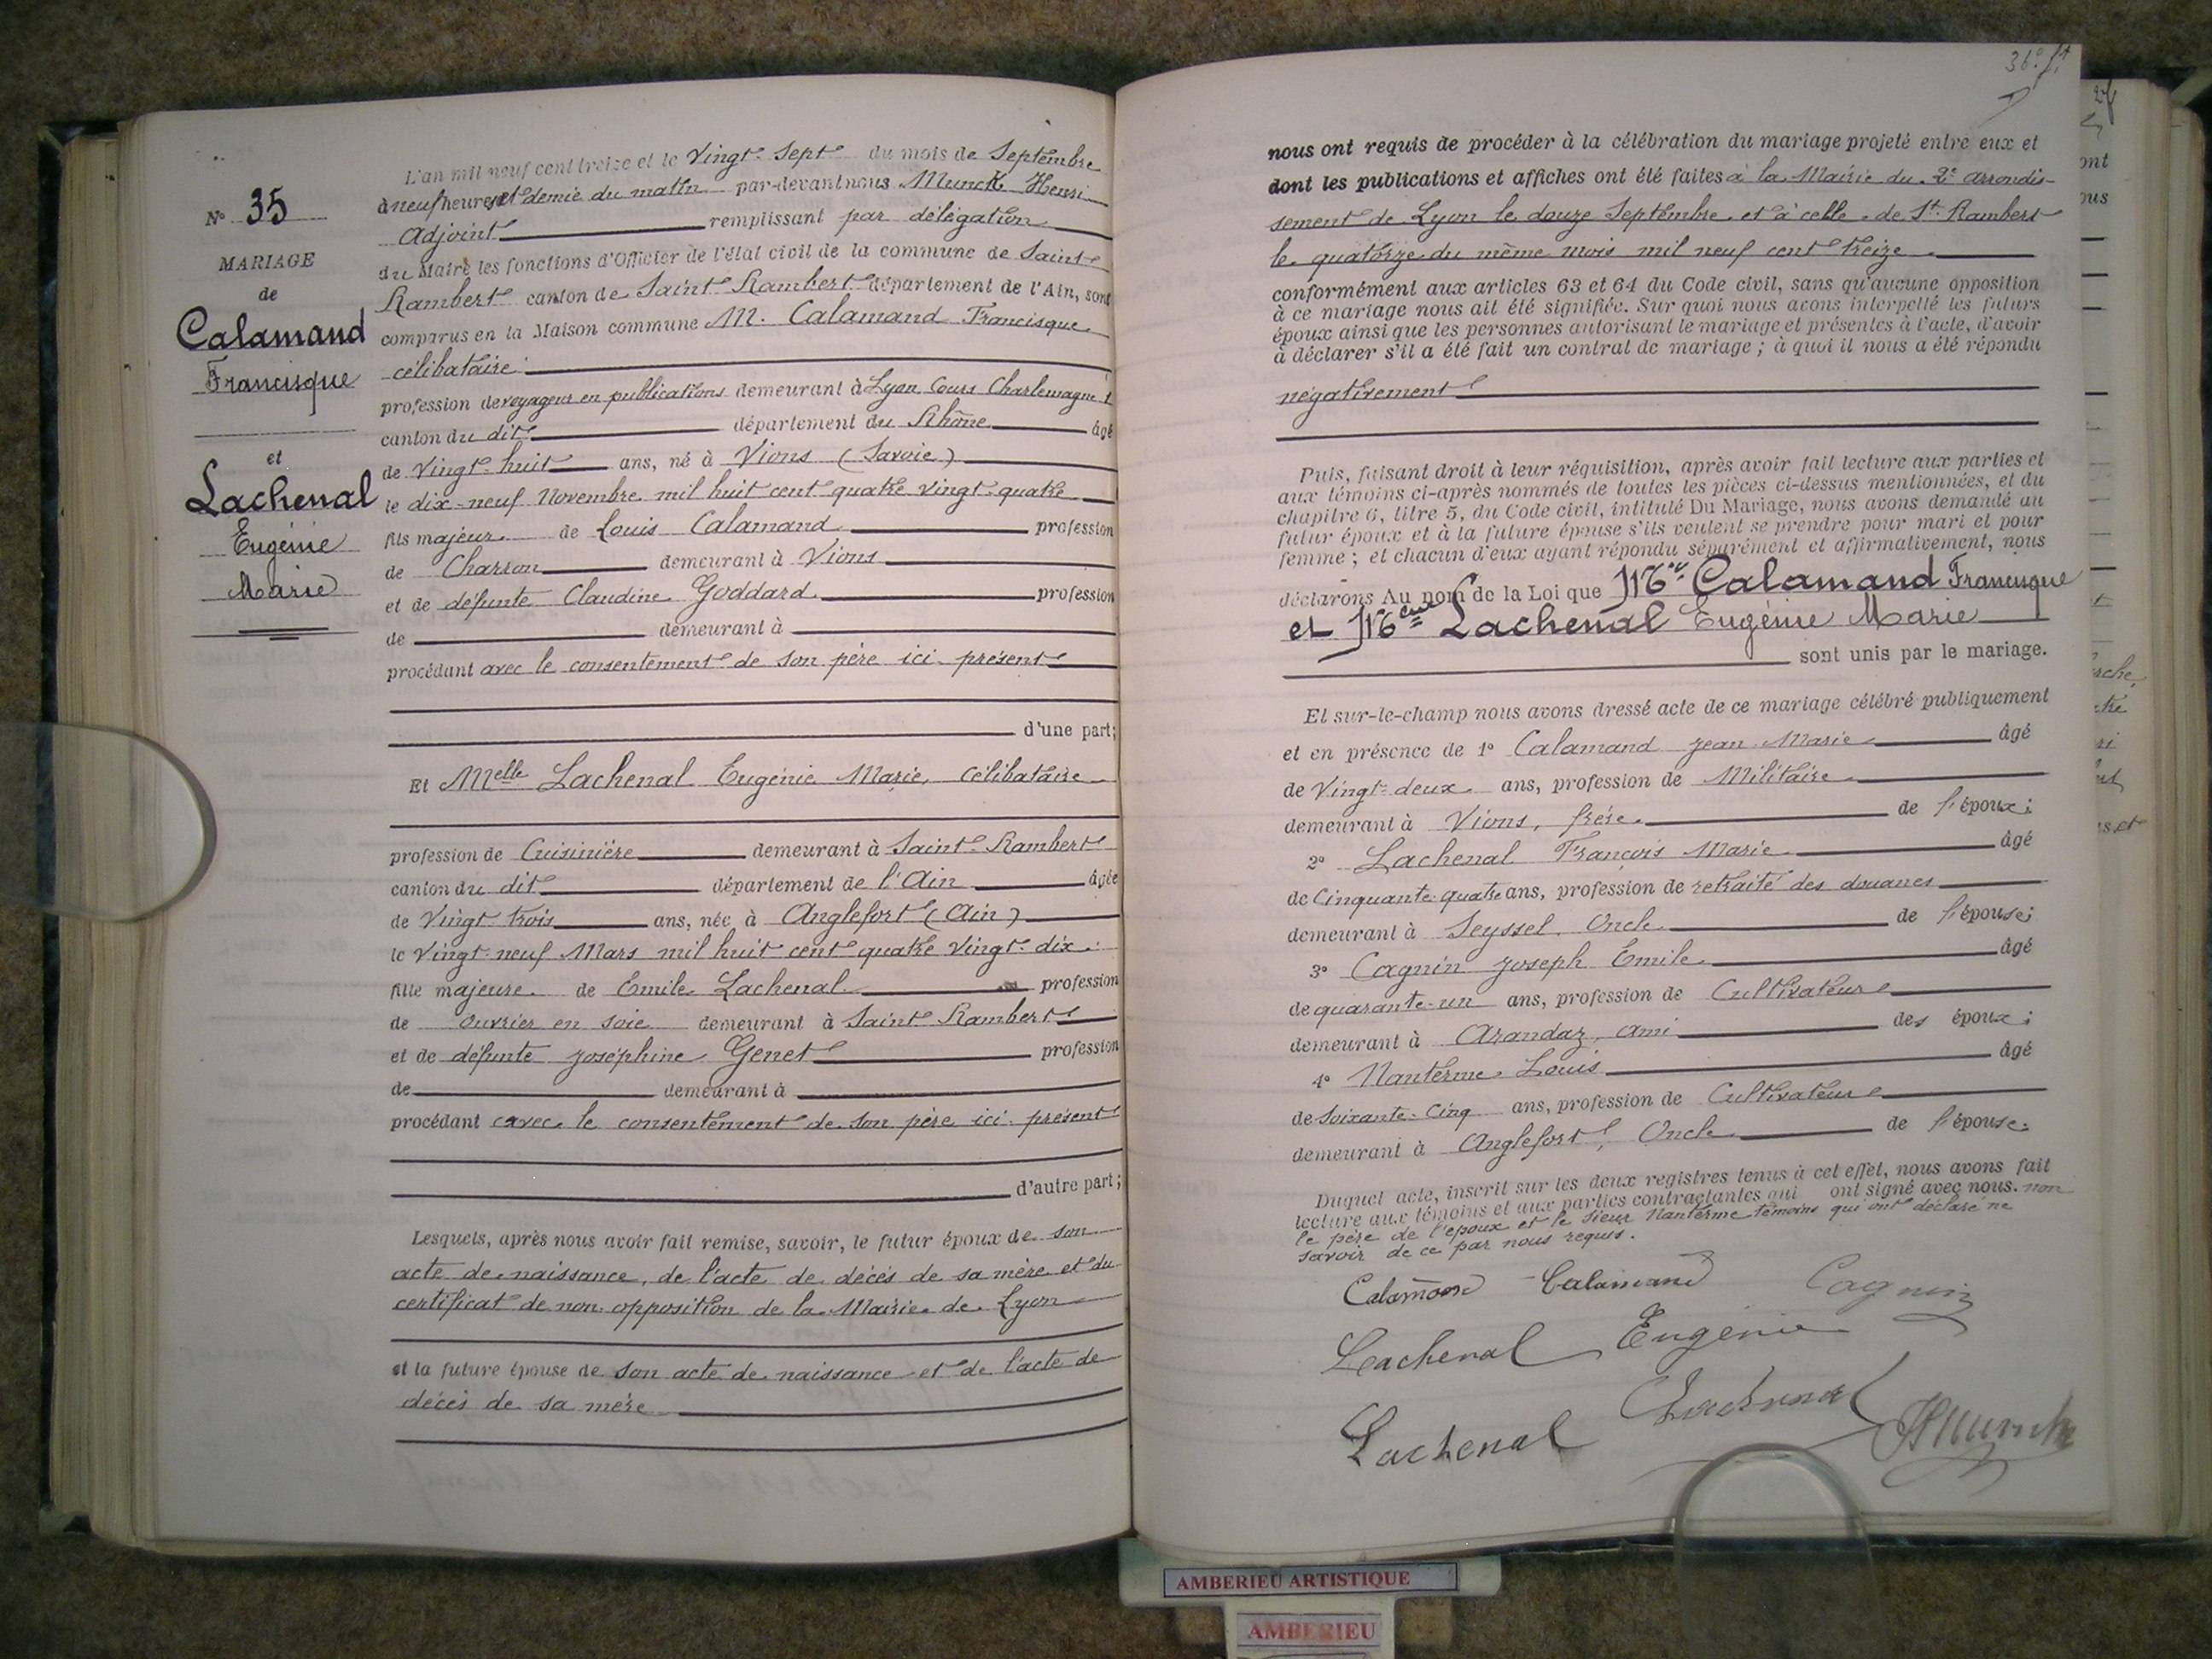 N° 35
MARIAGE
de
Calamand
Francisque
et
Lachenal
Eugénie
Marie
L'an mil neuf cent treize et le Vingt-Sept du mois de Septembre
à neuf heures et demie du matin par-devant nous Munck Henri
Adjoint remplissant par délégation
du Maire les fonctions d'Officier de l'état civil de la commune de Saint-
Rambert canton de Saint-Rambert département de l'Ain, sont
comparus en la Maison commune M. Calamand Francisque
célibataire
profession de voyageur en publications demeurant à Lyon Cours Charlemagne 1
canton du dit département du Rhône âgé
de Vingt-huit ans, né à Vions (Savoie)
le dix-neuf Novembre mil huit cent quatre vingt-quatre
fils majeur de Louis Calamand profession
de Charron demeurant à Vions
et de défunte Claudine Goddard profession
de demeurant à
procédant avec le consentement de son père ici présent
d'une part;
Et Melle Lachenal Eugénie Marie, célibataire
profession de Cuisinière demeurant à Saint-Rambert
canton du dit département de l'Ain âgée
de Vingt trois ans, née à Anglefort (Ain)
le Vingt-neuf Mars mil huit cent quatre Vingt-dix
fille majeure de Emile Lachenal profession
de ouvrier en soie demeurant à Saint Rambert
et de défunte Joséphine Genet profession
de demeurant à
procédant avec le consentement de son père ici présent
d'autre part;
Lesquels, après nous avoir fait remise, savoir, le futur époux de son
acte de naissance, de l'acte de décès de sa mère et du
certificat de non opposition de la Mairie de Lyon
et la future épouse de son acte de naissance et de l'acte de
décès de sa mère
36e
nous ont requis de procéder à la célébration du mariage projeté entre eux et
dont les publications et affiches ont été faites à la Mairie du 2e arrondis-
sement de Lyon le douze Septembre et à celle de St Rambert
le quatorze du même mois mil neuf cent treize
conformément aux articles 63 et 64 du Code civil, sans qu'aucune opposition
à ce mariage nous ait été signifiée. Sur quoi nous avons interpellé les futurs
époux ainsi que les personnes autorisant le mariage et présentes à l'acte, d'avoir
à déclarer s'il a été fait un contrat de mariage ; à quoi il nous a été répondu
négativement
Puis, faisant droit à leur réquisition, après avoir fait lecture aux parties et
aux témoins ci-après nommés de toutes les pièces ci-dessus mentionnées, et du
chapitre 6, titre 5, du Code civil, intitulé Du Mariage, nous avons demandé au
futur époux et à la future épouse s'ils veulent se prendre pour mari et pour
femme ; et chacun d'eux ayant répondu séparément et affirmativement, nous
déclarons Au nom de la Loi que Mr Calamand Francisque
et Melle Lachenal Eugénie Marie
sont unis par le mariage.
Et sur-le-champ nous avons dressé acte de ce mariage célébré publiquement
et en présence de 1° Calamand Jean Marie âgé
de Vingt-deux ans, profession de Militaire
demeurant à Vions, frère de l'époux;
2° Lachenal François Marie âgé
de Cinquante-quatre ans, profession de retraité des douanes
demeurant à Seyssel, Oncle de l'épouse;
3° Cagnin Joseph Emile âgé
de quarante-un ans, profession de Cultivateur
demeurant à Arandaz, ami des époux;
4° Nanterme Louis âgé
de Soixante-Cinq ans, profession de Cultivateur
demeurant à Anglefort, Oncle de l'épouse.
Duquel acte, inscrit sur les deux registres tenus à cet effet, nous avons fait
lecture aux témoins et aux parties contractantes qui ont signé avec nous. non
le père de l'époux et le sieur Nanterme témoins qui ont déclaré ne
savoir de ce par nous requis.
Calamand Calamand Cagnin
Lachenal Eugénie
Lachenal Lachenal HMunck
AMBERIEU ARTISTIQUE
AMBERIEU